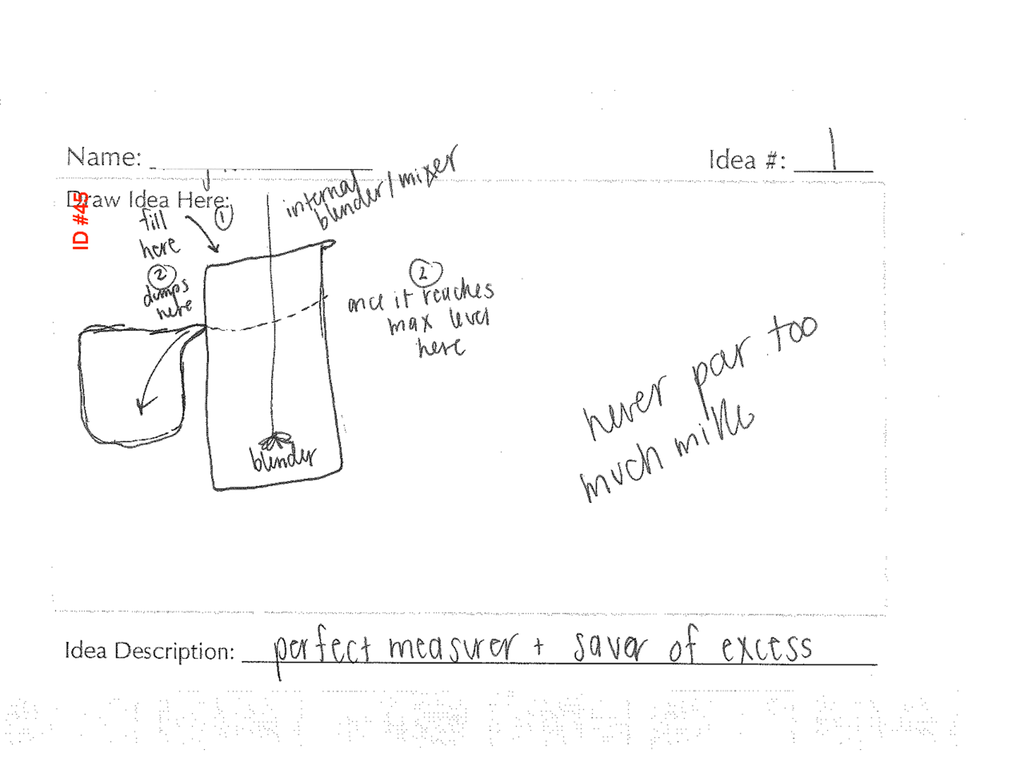 Name:
Idea #: 1
Draw Idea Here:
ID #45
fill
here
1
internal
blender/mixer
2
dumps
here
2
once it reaches
max level
here
blender
never por too
much milk
Idea Description: perfect measurer + saver of excess